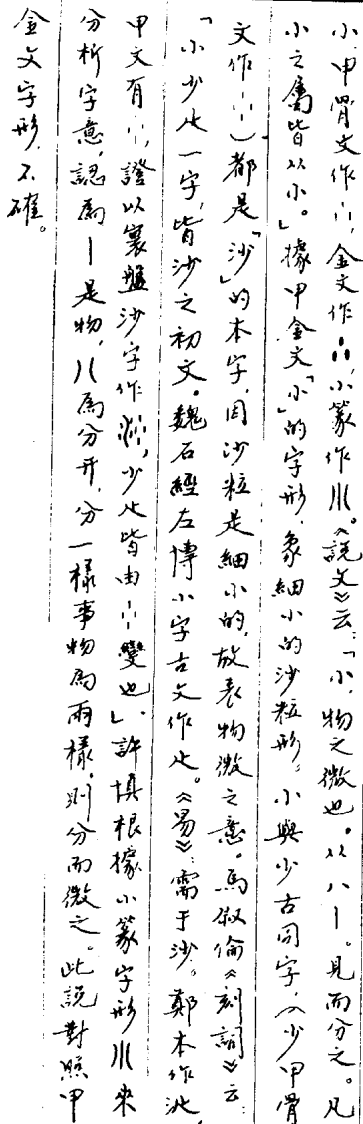 小，甲骨文作⺌，金文作⺌，小篆作川。《說文》云：「小，物之微也。从八丨。見而分之。凡
小之屬皆从小。」據甲金文「小」的字形，象細小的沙粒形。小與少古同字，（少甲骨
文作）都是「沙」的本字，因沙粒是細小的，故表物微之意。馬叙倫《刻詞》云：
「小少𣥂一字，皆沙之初文。魏石經左傳小字古文作𣥂。《易》：需于沙。鄭本作沚，
甲文有，證以㐮盤沙字作，少𣥂皆由變也」。許慎根據小篆字形川來
分析字意，認爲丨是物，八爲分开，分一樣事物爲兩樣，則分而微之。此説對照甲
金文字形，不確。